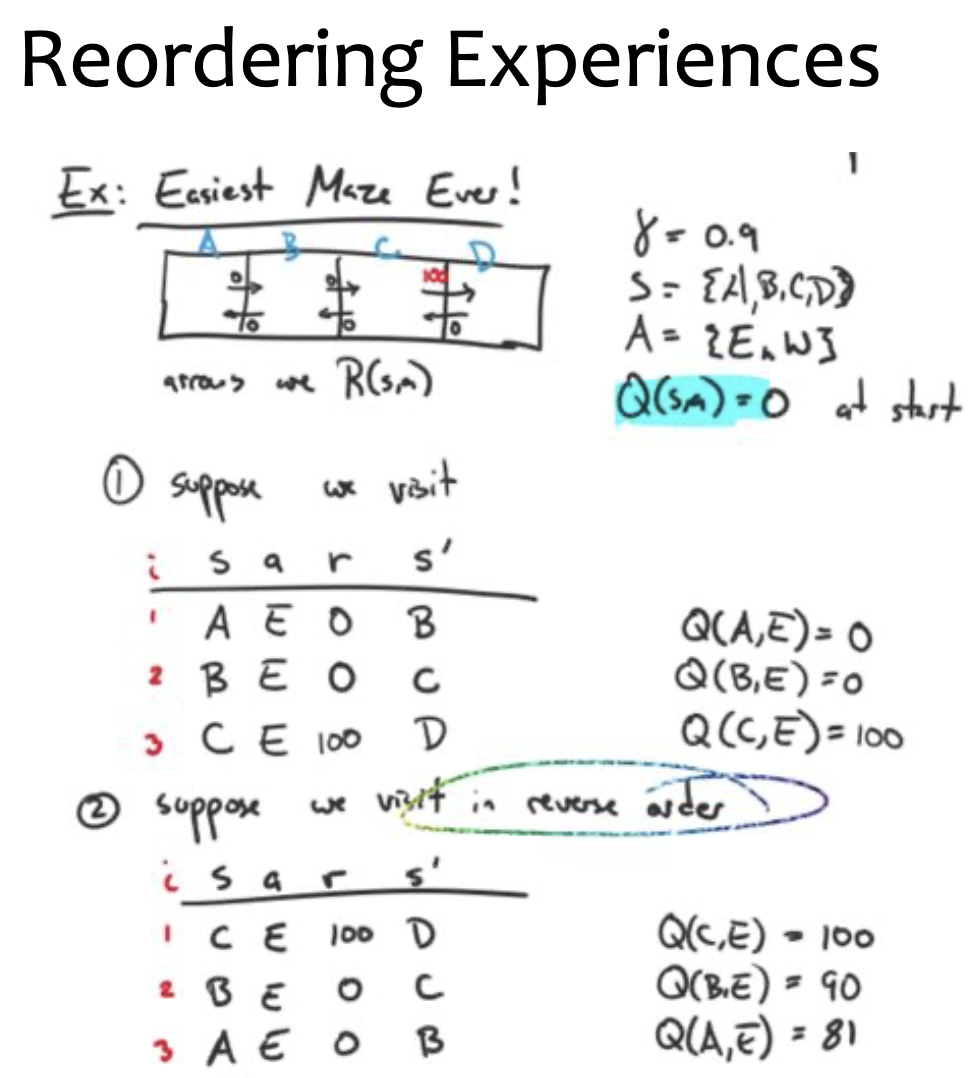 Reordering Experiences
Ex: Easiest Maze Ever!
A B C D
0 0 100
0 0 0
arrows are R(s,a)
γ = 0.9
S = {A,B,C,D}
A = {E, W}
Q(s,a) = 0 at start
① suppose we visit
i s a r s'
1 A E 0 B
2 B E 0 C
3 C E 100 D
Q(A,E) = 0
Q(B,E) = 0
Q(C,E) = 100
② suppose we visit in reverse order
i s a r s'
1 C E 100 D
2 B E 0 C
3 A E 0 B
Q(C,E) = 100
Q(B,E) = 90
Q(A,E) = 81